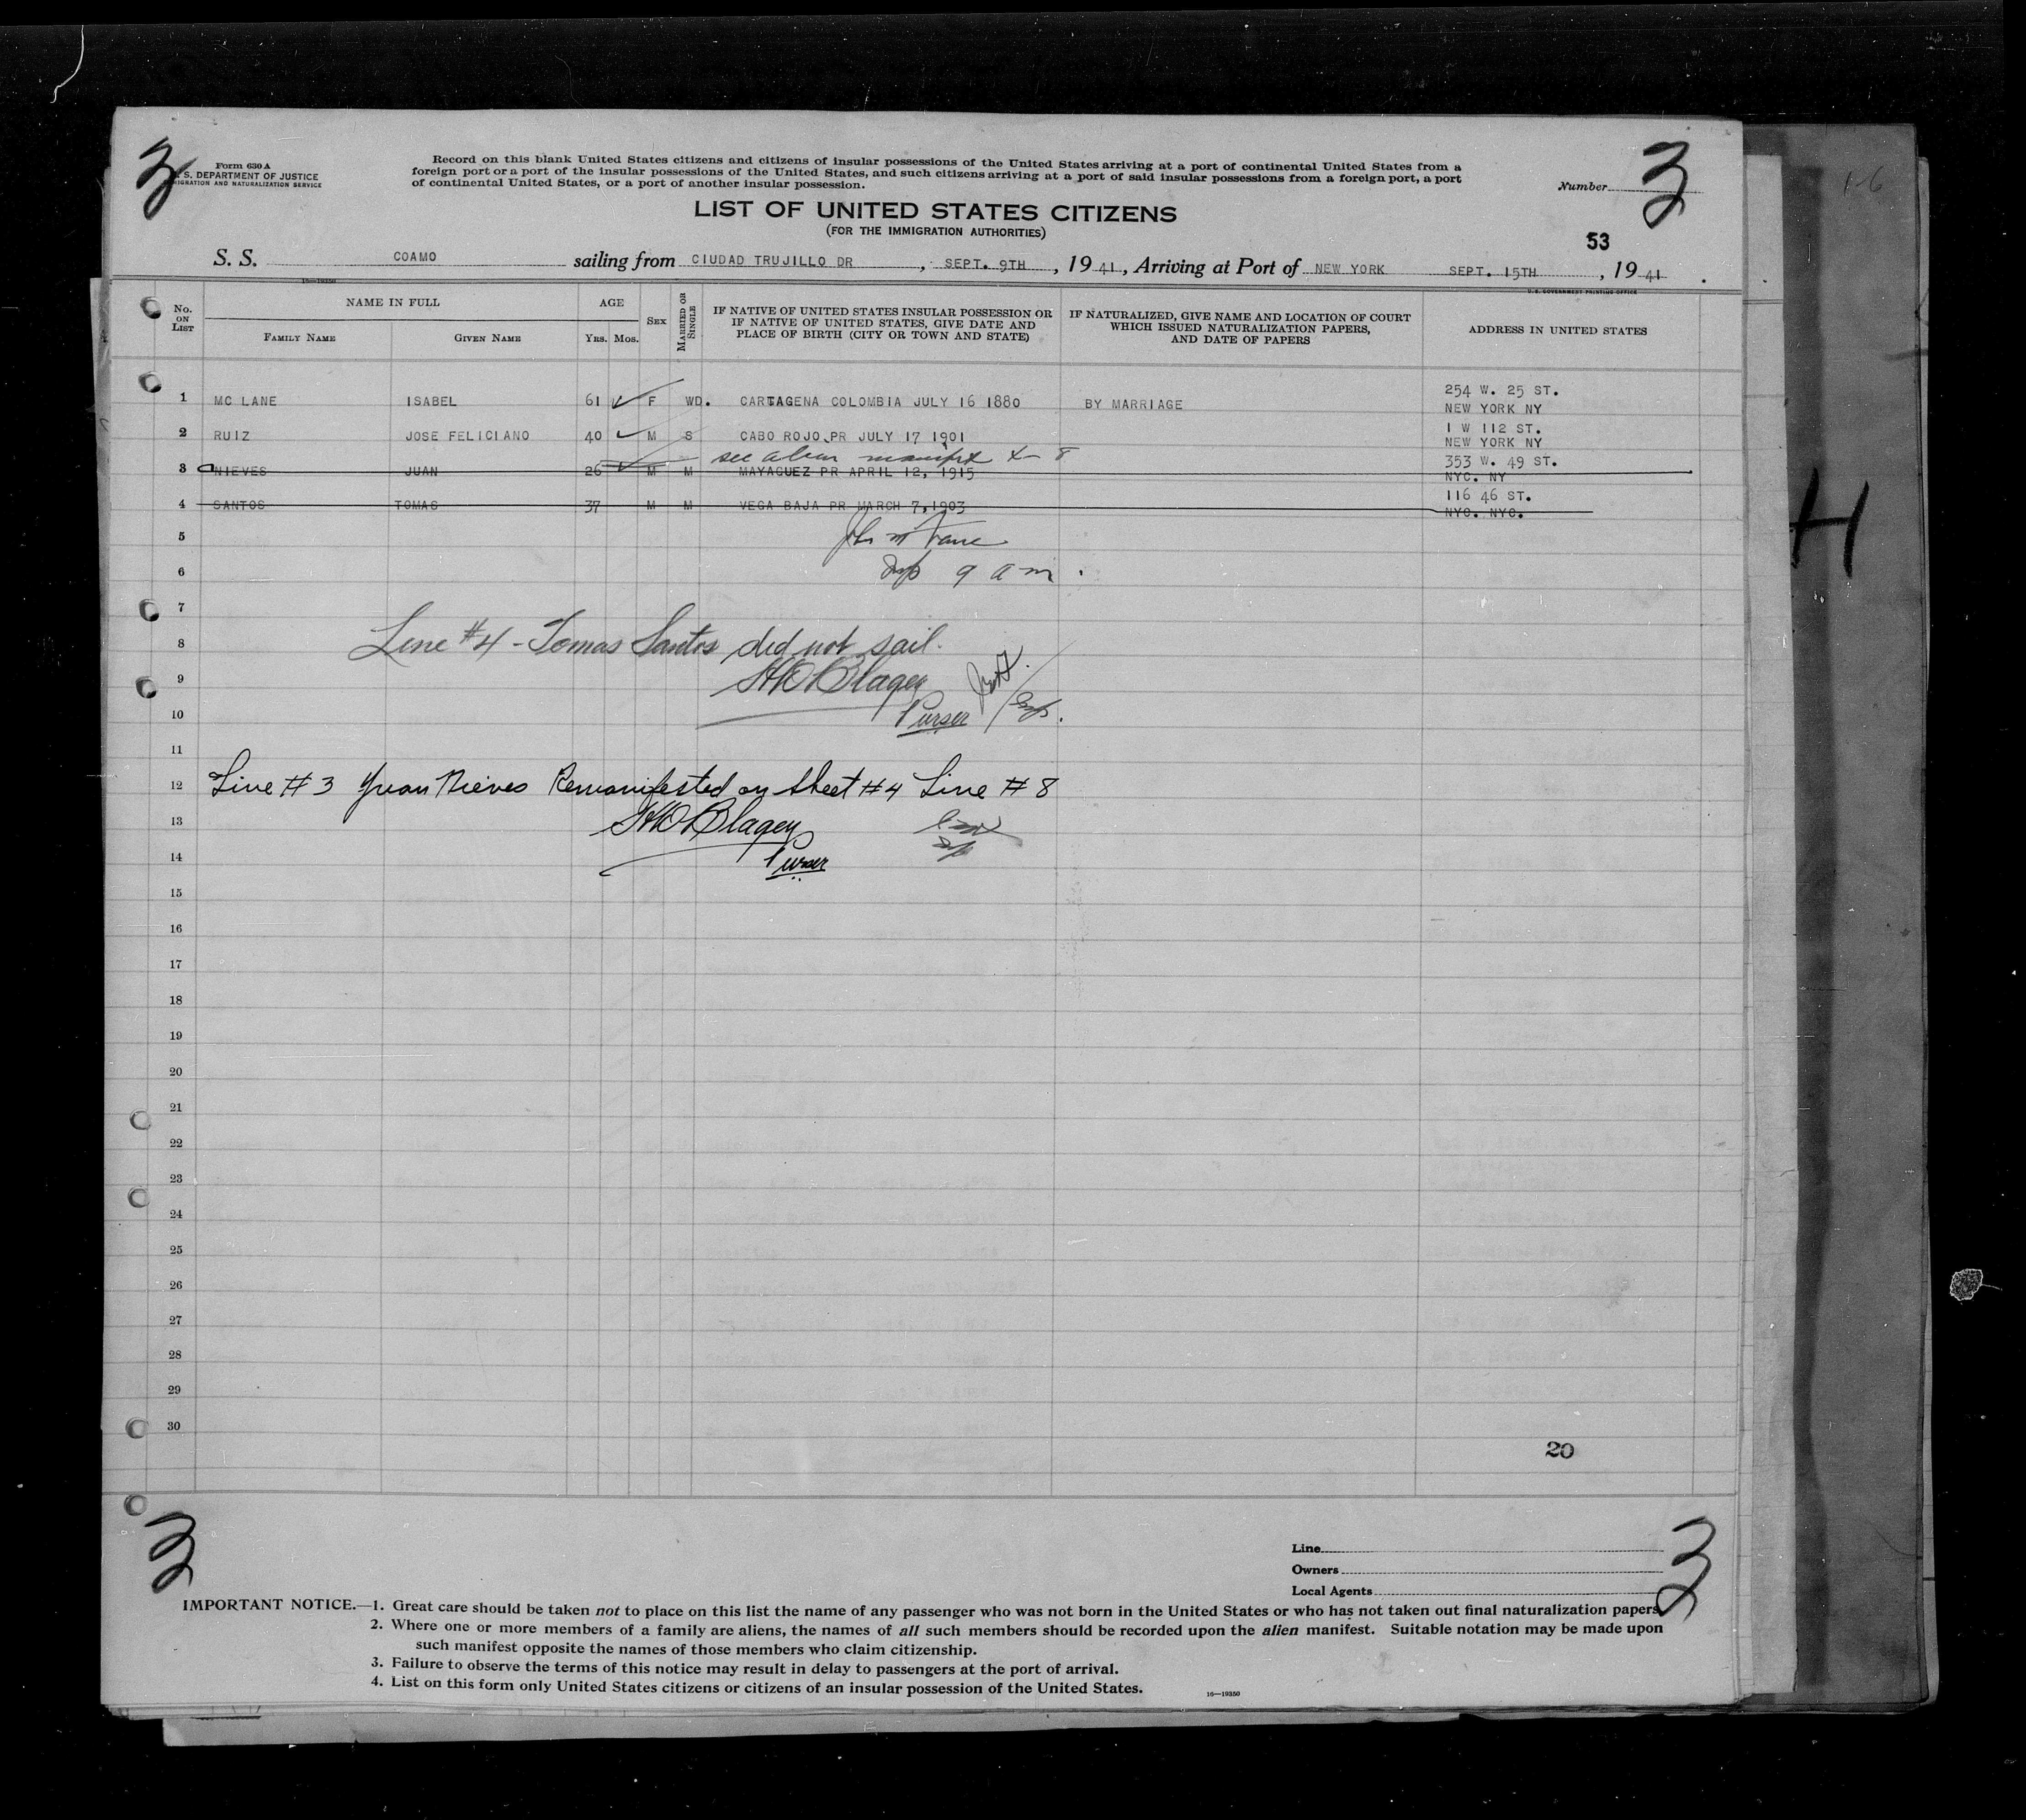 3
Form 630 A
S. DEPARTMENT OF JUSTICE
IMMIGRATION AND NATURALIZATION SERVICE
Record on this blank United States citizens and citizens of insular possessions of the United States arriving at a port of continental United States from a
foreign port or a port of the insular possessions of the United States, and such citizens arriving at a port of said insular possessions from a foreign port, a port
of continental United States, or a port of another insular possession.
Number 3
LIST OF UNITED STATES CITIZENS
(FOR THE IMMIGRATION AUTHORITIES)
53
S. S. COAMO sailing from CIUDAD TRUJILLO DR, SEPT. 9TH, 1941, Arriving at Port of NEW YORK SEPT. 15TH, 1941.
16—19350 U.S. GOVERNMENT PRINTING OFFICE
No. ON LIST
NAME IN FULL
FAMILY NAME GIVEN NAME
AGE
YRS. MOS.
SEX
MARRIED OR SINGLE
IF NATIVE OF UNITED STATES INSULAR POSSESSION OR
IF NATIVE OF UNITED STATES, GIVE DATE AND
PLACE OF BIRTH (CITY OR TOWN AND STATE)
IF NATURALIZED, GIVE NAME AND LOCATION OF COURT
WHICH ISSUED NATURALIZATION PAPERS,
AND DATE OF PAPERS
ADDRESS IN UNITED STATES
1 MC LANE ISABEL 61 F WD. CARTAGENA COLOMBIA JULY 16 1880 BY MARRIAGE 254 W. 25 ST.
NEW YORK NY
2 RUIZ JOSE FELICIANO 40 M S CABO ROJO PR JULY 17 1901 1 W 112 ST.
NEW YORK NY
see alien manifest 4-8
3 NIEVES JUAN 26 M M MAYAGUEZ PR APRIL 12, 1915 353 W. 49 ST.
NYC. NY
4 SANTOS TOMAS 37 M M VEGA BAJA PR MARCH 7, 1903 116 46 ST.
NYC. NYC.
5
6 9 am.
7
8 Line #4 - Tomas Santos did not sail.
9 Blagey
10 Purser
11
12 Line #3 Juan Nieves Remanifested on sheet #4 Line #8
13 Blagey
14 Purser
15
16
17
18
19
20
21
22
23
24
25
26
27
28
29
30
20
3
3
Line
Owners
Local Agents
IMPORTANT NOTICE.—1. Great care should be taken not to place on this list the name of any passenger who was not born in the United States or who has not taken out final naturalization papers.
2. Where one or more members of a family are aliens, the names of all such members should be recorded upon the alien manifest. Suitable notation may be made upon
such manifest opposite the names of those members who claim citizenship.
3. Failure to observe the terms of this notice may result in delay to passengers at the port of arrival.
4. List on this form only United States citizens or citizens of an insular possession of the United States.
16—19350
1-6
H